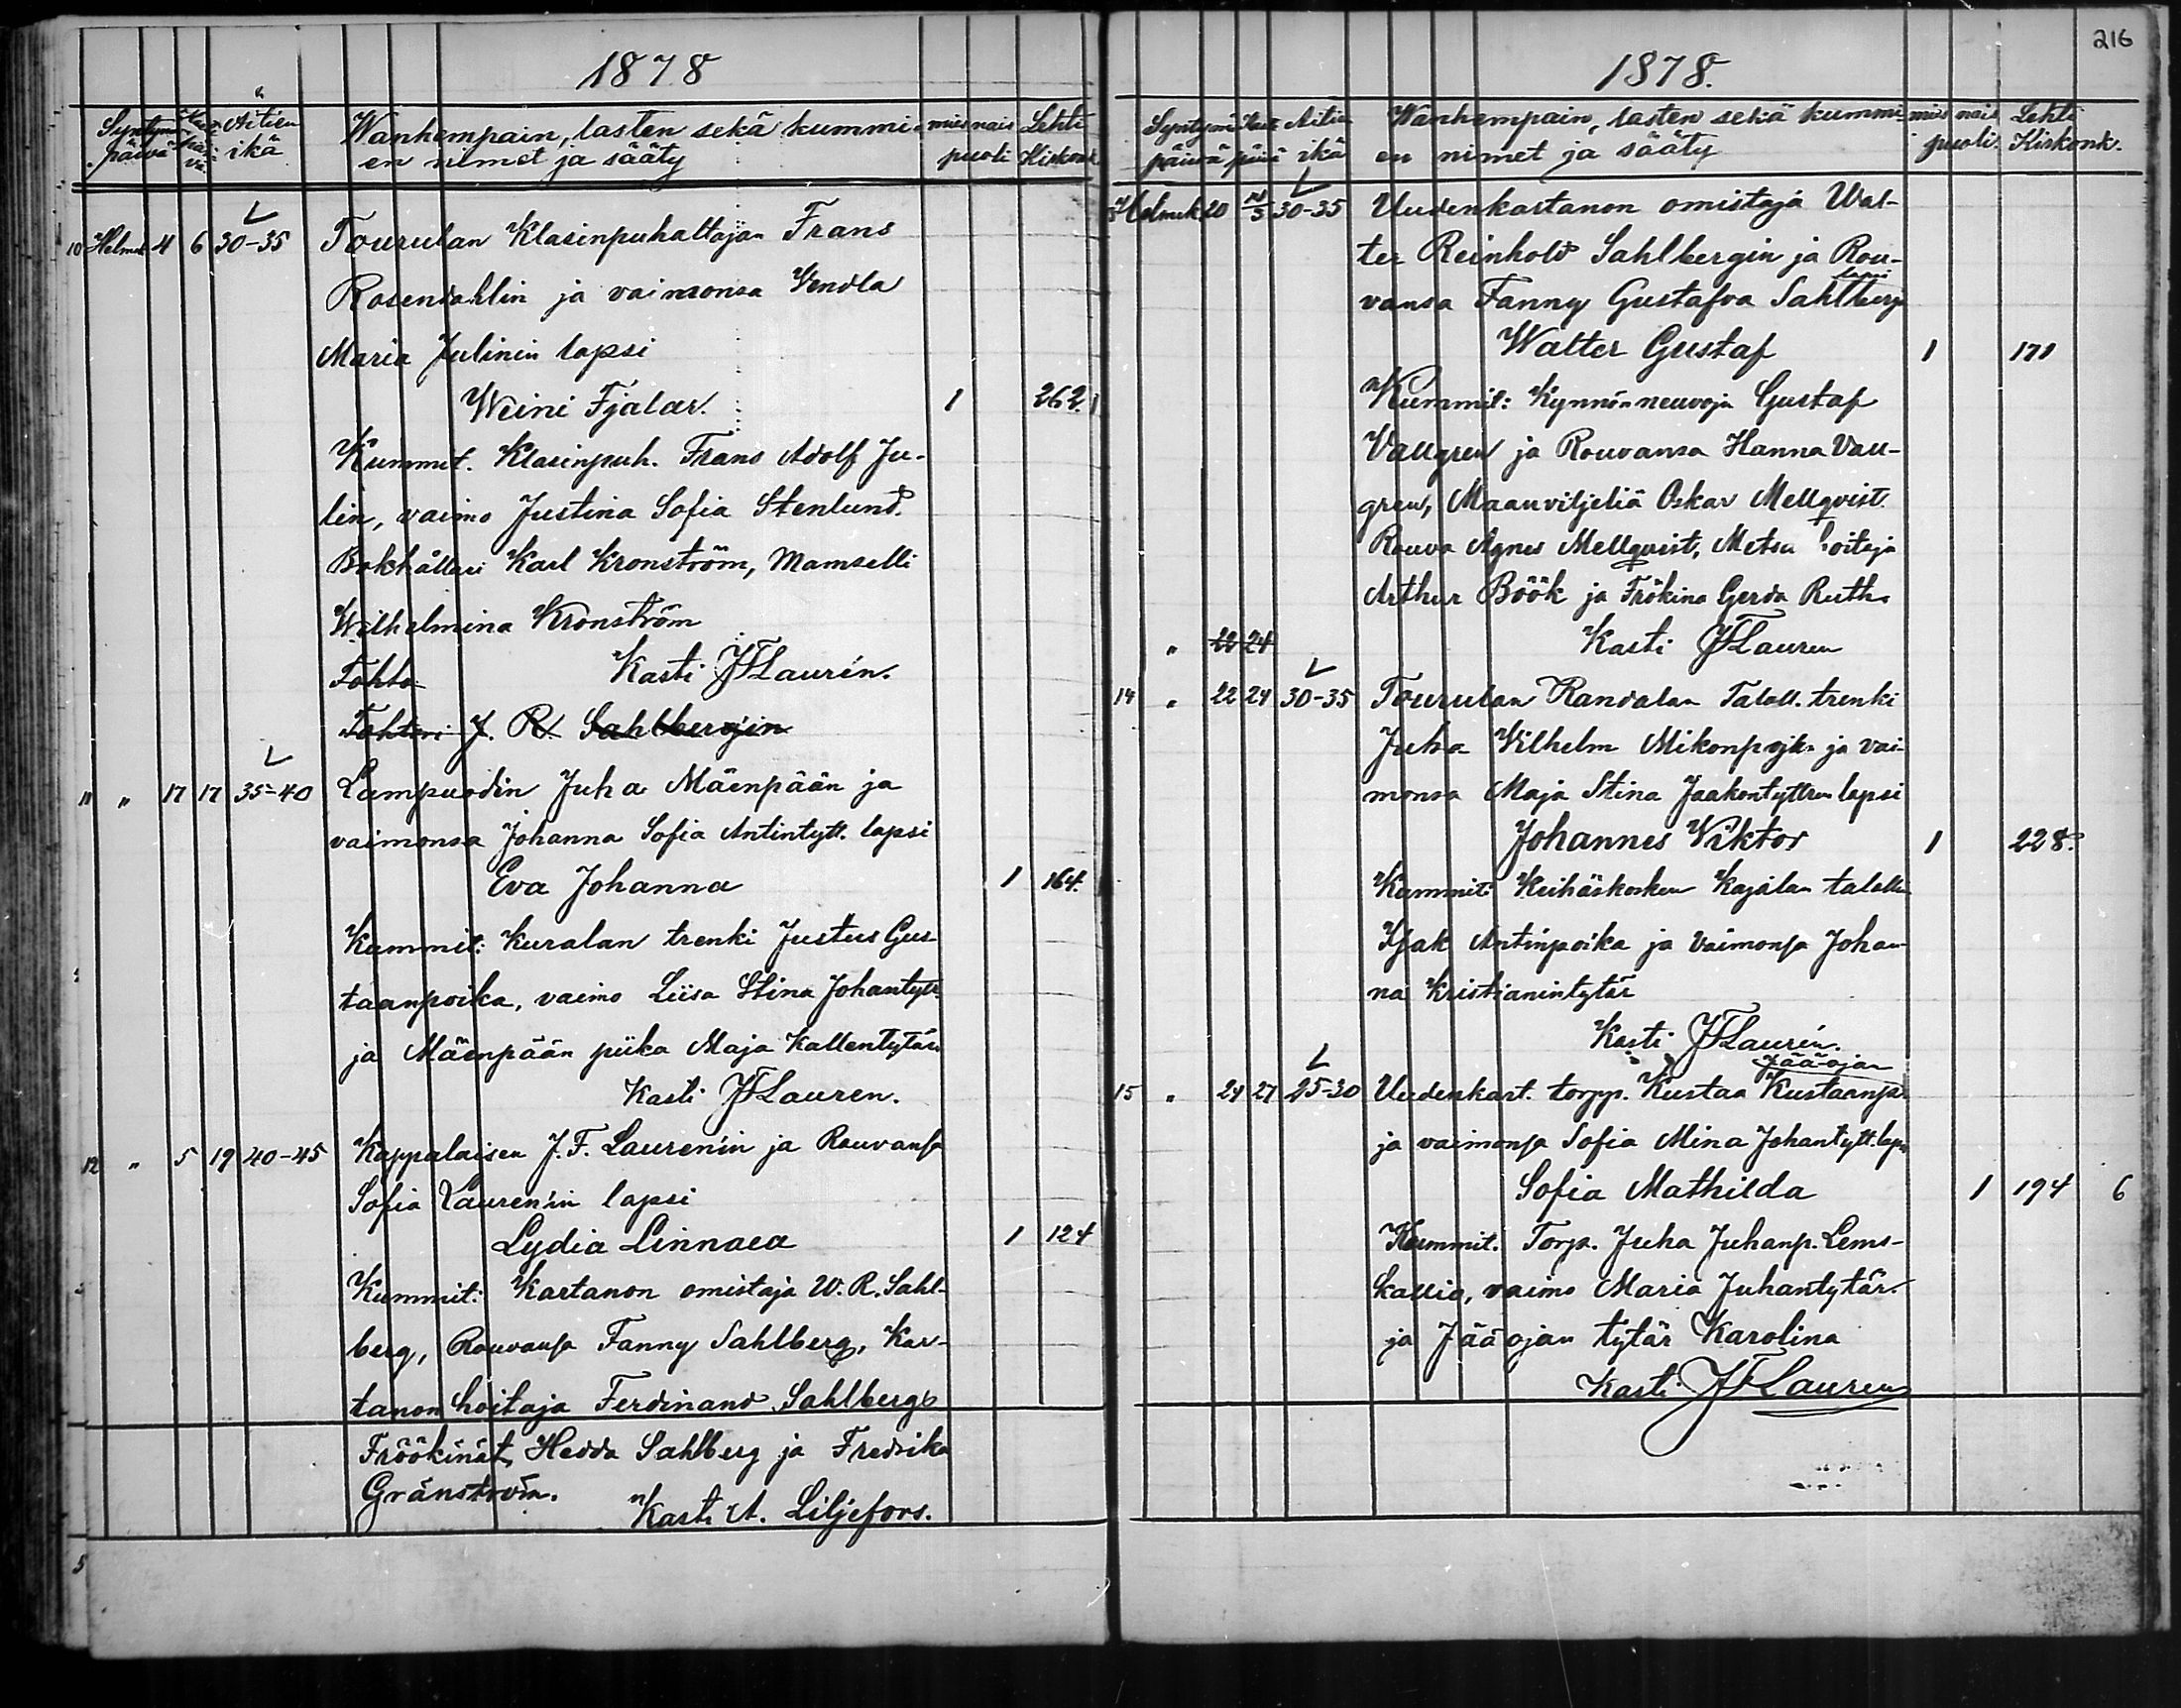 1878
Syntymä päivä Kastepäivä Äitien ikä Wanhempain, lasten sekä kummi- mies nais Lehti
en nimet ja sääty puoli Kirkonk
10 Helmik 4 6 30-35 Tourulan Klasinpuhaltajan Frans
Rosendahlin ja vaimonsa Wendla
Maria Julinin lapsi
Weini Fjalar. 1 262.
Kummit. Klasinpuh. Frans Adolf Ju-
lin, vaimo Justina Sofia Stenlund.
Bokhålleri Karl Kronström, Mamselli
Wilhelmina Kronström
Tohto Kasti JFLaurén.
Tohtori J. R. Sahlbergin
11 " 17 17 35-40 Lampuodin Juha Mäenpään ja
vaimonsa Johanna Sofia Antintytt. lapsi
Eva Johanna 1 164.
Kummit: Kuralan trenki Justus Gus-
taanpoika, vaimo Liisa Stina Johantytt.
ja Mäenpään piika Maja Kallentytär.
Kasti JFLauren.
12 " 5 19 40-45 Kappalaisen J. F. Laurenin ja Rouvansa
Sofia Laurenin lapsi
Lydia Linnaea 1 124
Kummit: Kartanon omistaja W. R. Sahl-
berg, Rouvansa Fanny Sahlberg, Kar-
tanon hoitaja Ferdinand Sahlberg
Fröökinät Hedda Sahlberg ja Fredrika
Gränström. Kasti A. Liljefors.
216
1878.
Syntymä Kaste Äitien Wanhempain, lasten sekä kummi mies nais Lehti
päivä päivä ikä en nimet ja sääty puoli. Kirkonk.
Helmik 20 30-35 Uudenkartanon omistaja Wal-
ter Reinhold Sahlbergin ja Rou-
lapsi
vansa Fanny Gustafva Sahlberg
Walter Gustaf 1 171
Kummit: Kynnönneuvoja Gustaf
Vallgren ja Rouvansa Hanna Vall-
gren, Maanviljeliä Oskar Mellqvist.
Rouva Agnes Mellqvist, Metsa hoitaja
Arthur Böök ja Frökina Gerda Ruth.
" 22 24 Kasti JFLauren
14 " 22 24 30-35 Tourulan Randalan Taloll. trenki
Juha Wilhelm Mikonpojan ja vai-
monsa Maja Stina Jaakontyttren lapsi
Johannes Viktor 1 228.
Kummit: Keihäskosken Kajalan talolli
Isak Antinpoika ja Vaimonsa Johan-
na Kristjanintytär
Kasti JFLaurén.
Jääojan
15 " 24 27 25-30 Uudenkart. torpp. Kustaa Kustaanp.
ja vaimonsa Sofia Mina Johantytt. lapsi
Sofia Mathilda 1 194 6
Kummit. Torp. Juha Juhanp. Lems-
kallio, vaimo Maria Juhantytär.
ja Jääojan tytär Karolina
Kasti JFLauren